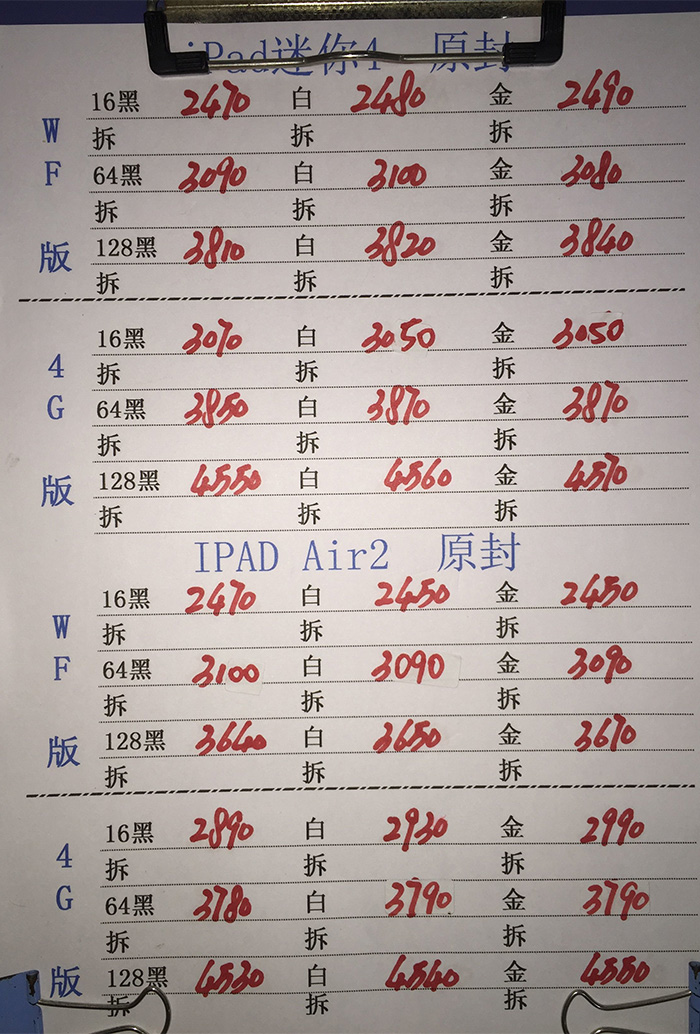 iPad迷你4 原封
16黑 2470 白 2480 金 2490
W
拆 拆 拆
F
64黑 3090 白 3100 金 3080
拆 拆 拆
版
128黑 3810 白 3820 金 3840
拆 拆 拆
16黑 3070 白 3050 金 3050
4
拆 拆 拆
G
64黑 3850 白 3870 金 3870
拆 拆 拆
版
128黑 4550 白 4560 金 4570
拆 拆 拆
IPAD Air2 原封
16黑 2470 白 2450 金 2450
W
拆 拆 拆
F
64黑 3100 白 3090 金 3090
拆 拆 拆
版
128黑 3640 白 3650 金 3670
拆 拆 拆
16黑 2890 白 2930 金 2990
4
拆 拆 拆
G
64黑 3780 白 3790 金 3790
拆 拆 拆
版
128黑 4530 白 4540 金 4550
拆 拆 拆